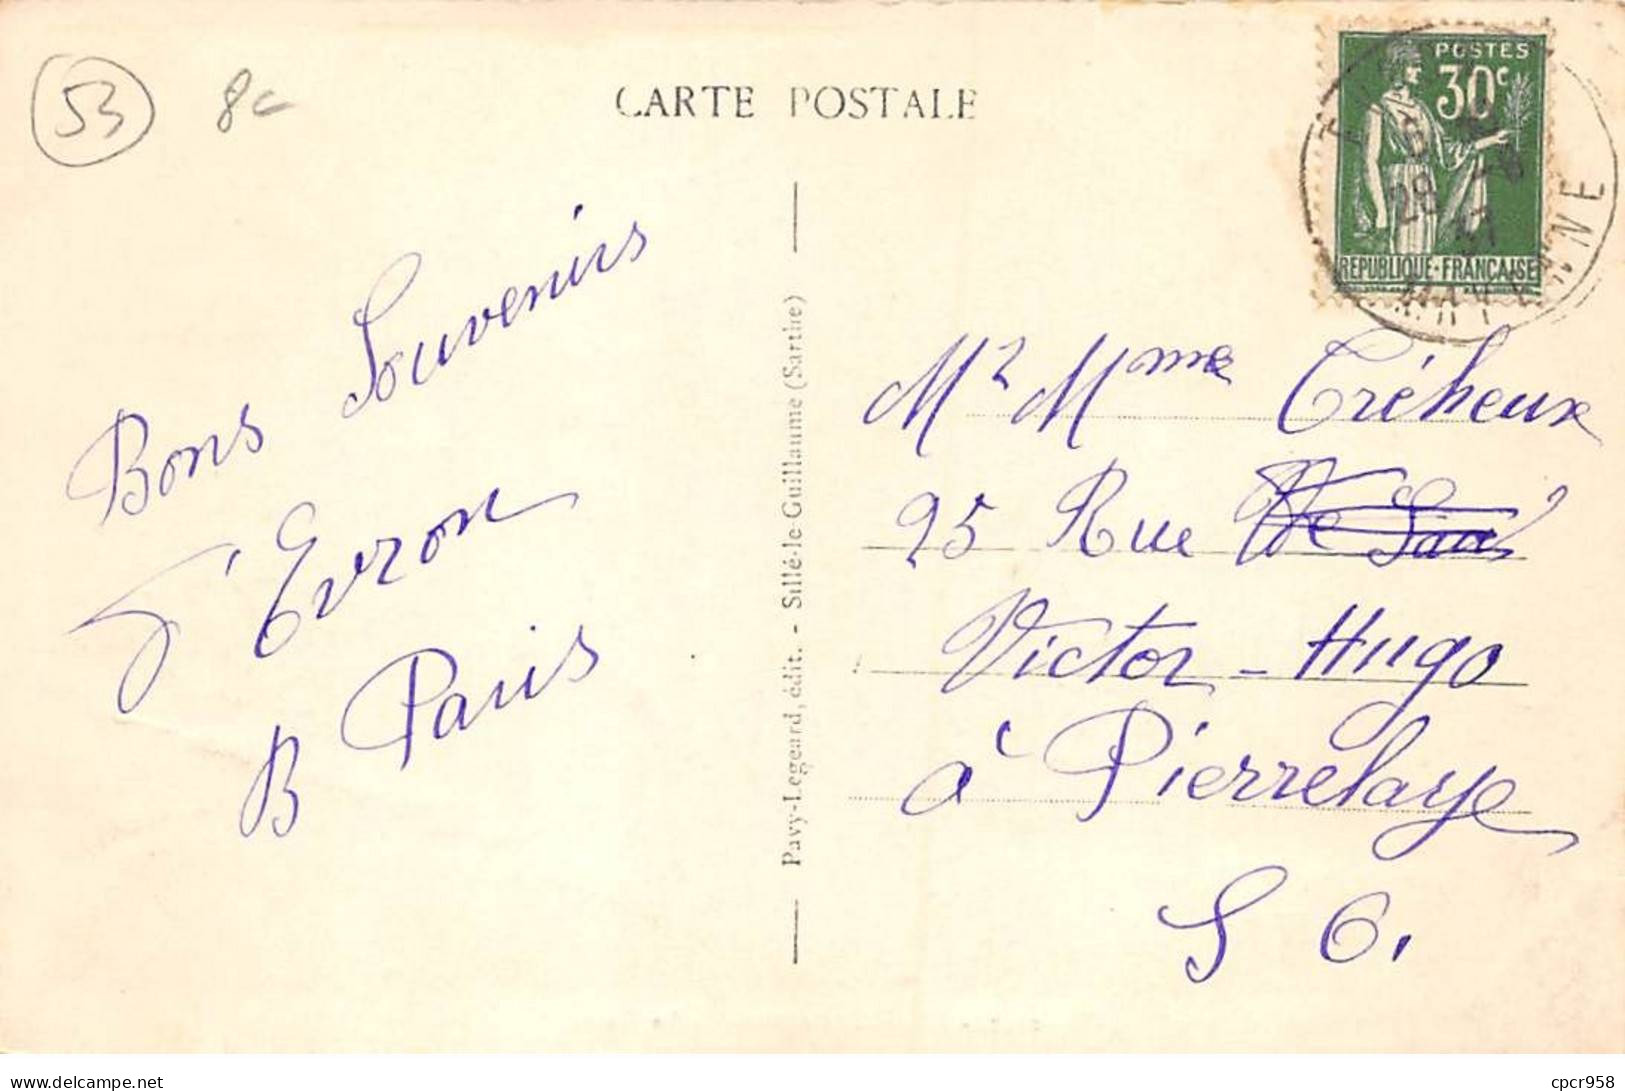 53
8c
CARTE POSTALE
POSTES
30c
REPUBLIQUE-FRANÇAISE
28
MAYENNE
Bons Souvenirs
d'Evron
B Paris
Pavy-Legeard, édit. - Sillé-le-Guillaume (Sarthe)
Mr Mme Tréheux
95 Rue
Victor-Hugo
à Pierrelaye
S O.
delcampe.net
cpcr958